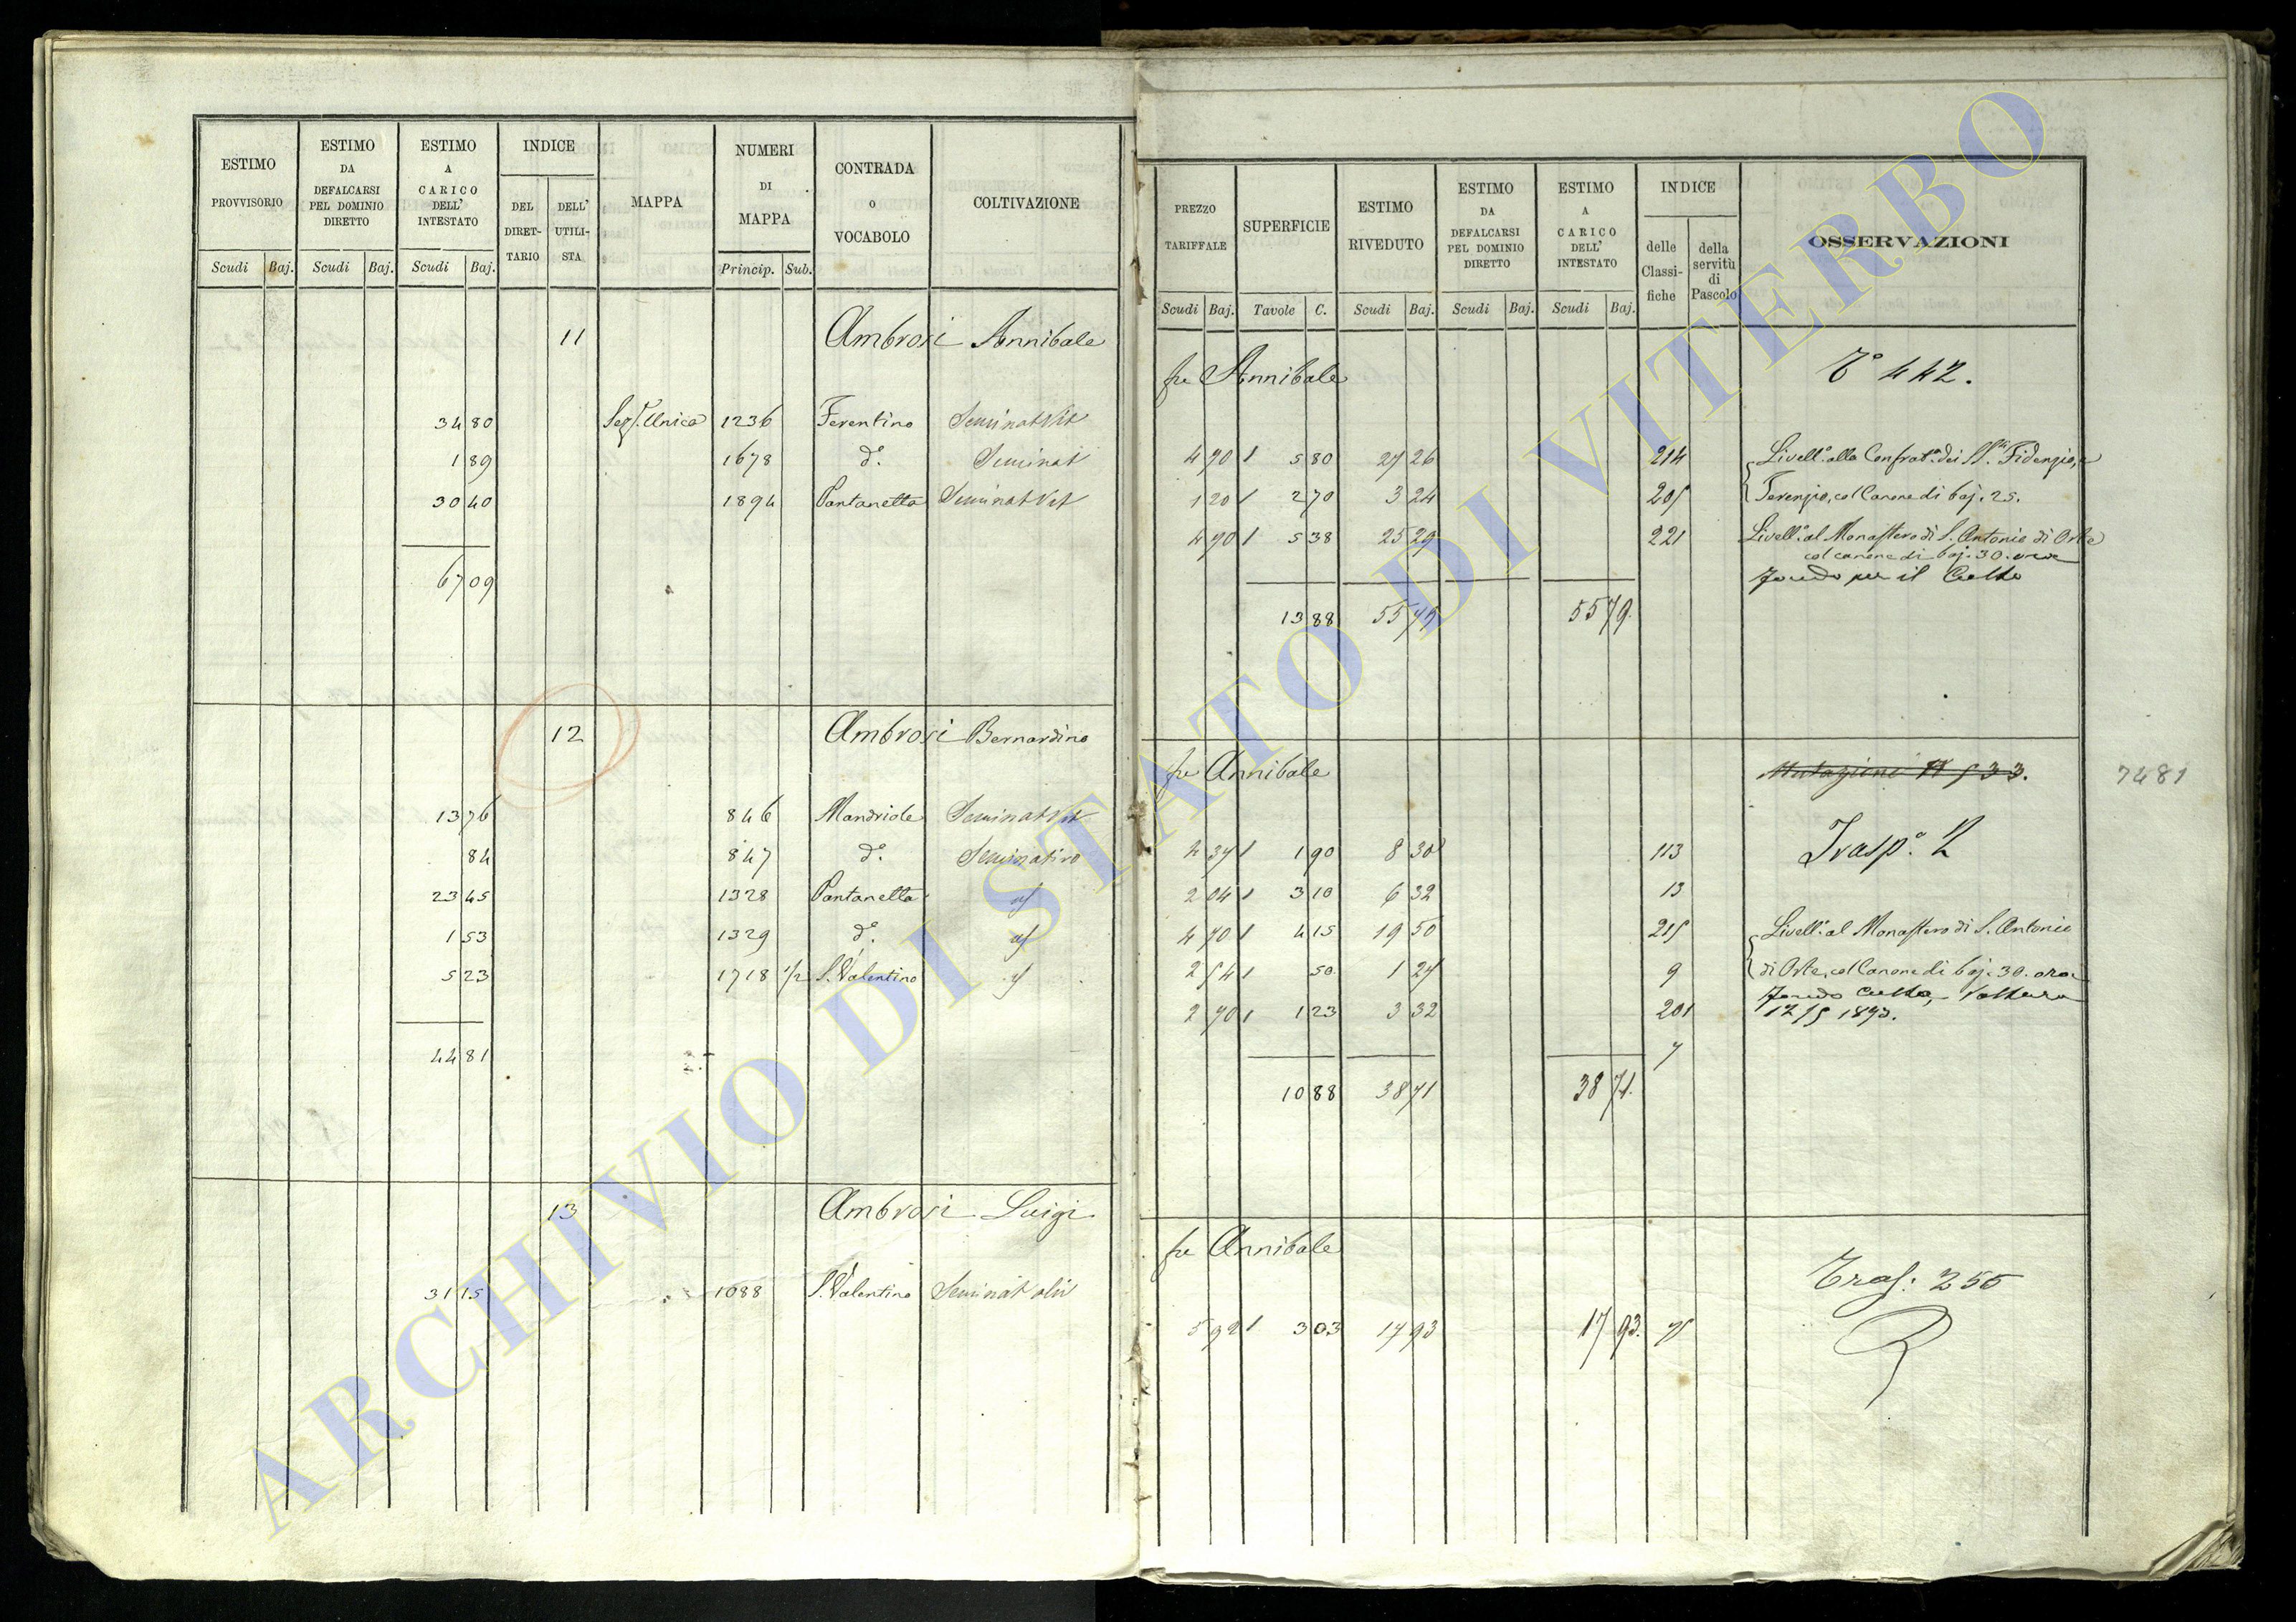 ESTIMO PROVVISORIO
ESTIMO DA DEFALCARSI PEL DOMINIO DIRETTO
ESTIMO A CARICO DELL' INTESTATO
INDICE
DEL DIRET- TARIO
DELL' UTILI- STA
MAPPA
NUMERI DI MAPPA
CONTRADA o VOCABOLO
COLTIVAZIONE
Scudi Baj. Scudi Baj. Scudi Baj. Princip. Sub.
11 Ambrosi Annibale
34 80 Sez. Unica 1236 Ferentino Seminat Vit
1 89 1678 d.º Seminat
30 40 1894 Pantanetta Seminat Vit
67 09
12 Ambrosi Bernardino
13 76 846 Mandriole Seminat Vit
84 847 d.º Seminativo
23 45 1328 Pantanetta
1 53 1329 d.º
5 23 1718 1/2 S. Valentino
44 81
13 Ambrosi Luigi
31 15 1088 S. Valentino Seminat oliv
PREZZO TARIFFALE
SUPERFICIE
ESTIMO RIVEDUTO
ESTIMO DA DEFALCARSI PEL DOMINIO DIRETTO
ESTIMO A CARICO DELL' INTESTATO
INDICE
delle Classi- fiche
della servitù di Pascolo
OSSERVAZIONI
Scudi Baj. Tavole C. Scudi Baj. Scudi Baj. Scudi Baj.
fu Annibale Tº 442.
4 70 5 80 27 26 214 Livellº alla Confratª dei SS. Fidenzio, e
1 20 2 70 3 24 205 Terenzio, col Canone di baj. 25.
4 70 5 38 25 29 221 Livellº al Monastero di S. Antonio di Orte
col canone di baj. 30. ora
fondo per il Culto
13 88 55 79 55 79.
fu Annibale Mutazioni 533. 7481
4 37 1 90 8 30 113 Trasp.º
2 04 3 10 6 32 13
4 70 4 15 19 50 215 Livellº al Monastero di S. Antonio
2 54 50 1 27 9 di Orte, col Canone di baj. 30. ora
2 70 1 23 3 32 201 fondo Culto, Voltura
7 1893.
10 88 38 71 38 71.
fu Annibale
Tras. 255
5 92 3 03 17 93 17 93. 75
ARCHIVIO DI STATO DI VITERBO